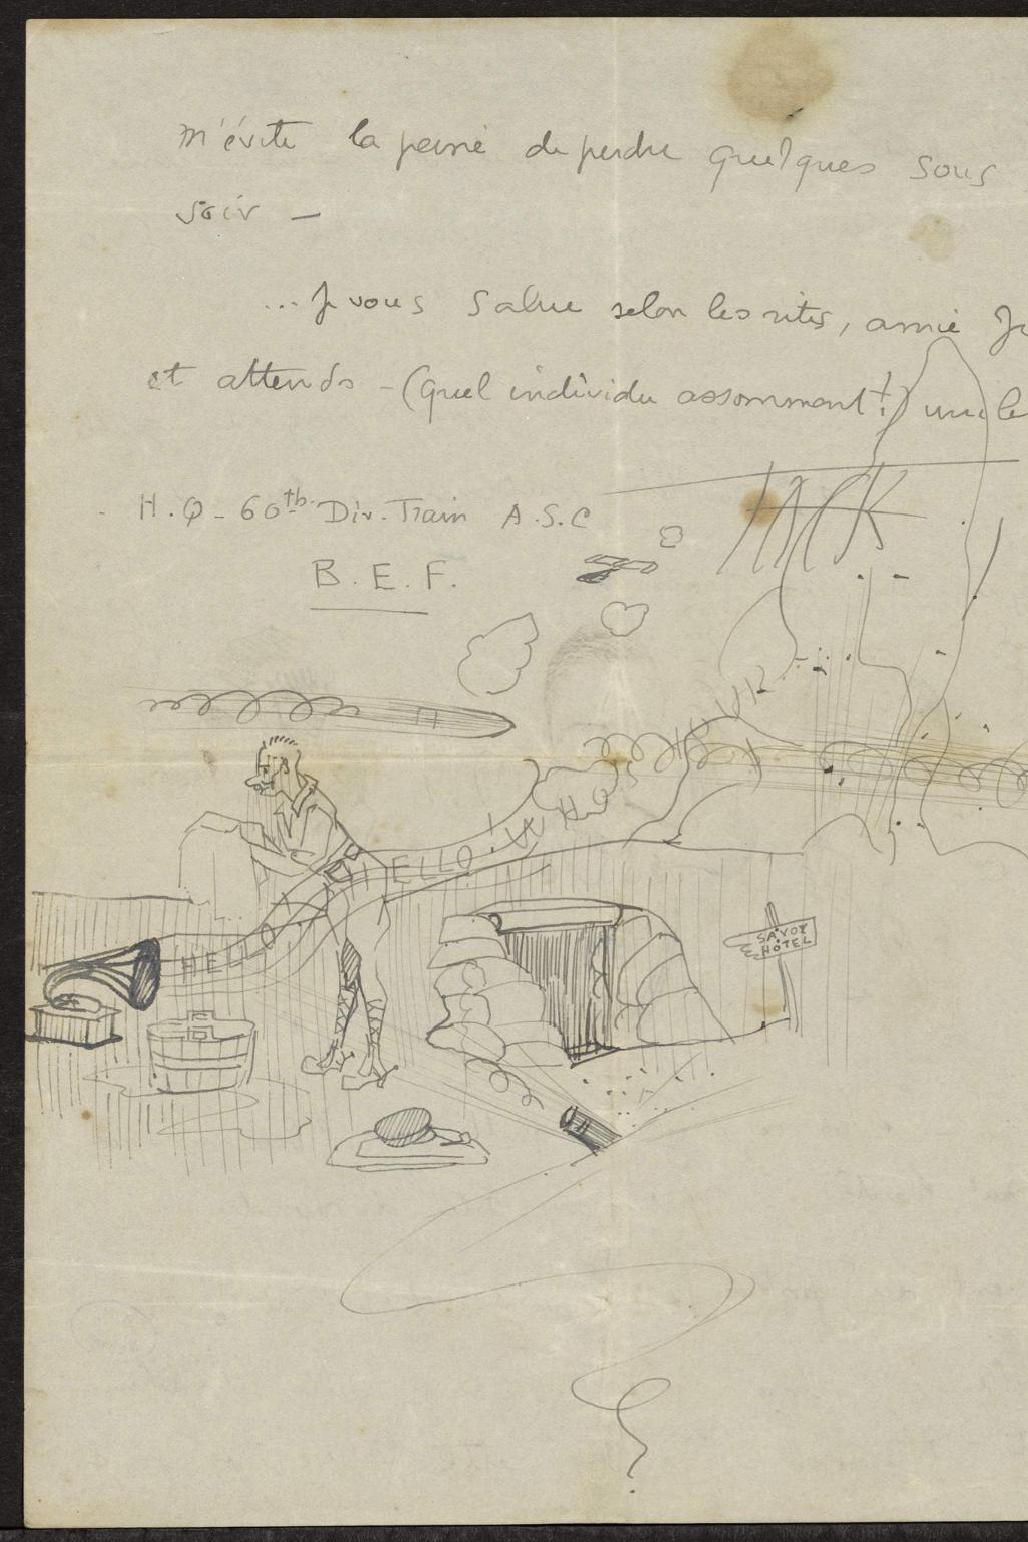 m'évite la peine de perdre quelques sous
soir —
... Je vous salue selon les rites, amie
et attends - (quel individu assommant!)
JACK
H.Q - 60th Div. Train A.S.C
B.E.F.
HELLO! HELLO! WHO
SAVOY
HÔTEL